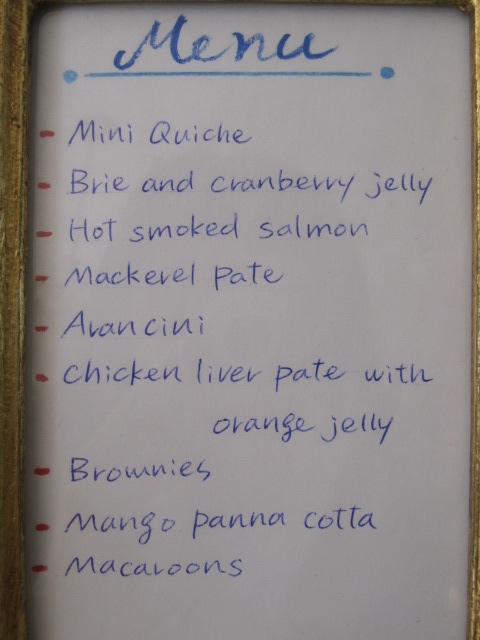 Menu
- Mini Quiche
- Brie and cranberry jelly
- Hot smoked salmon
- Mackerel pate
- Arancini
- Chicken liver pate with
orange jelly
- Brownies
- Mango panna cotta
- Macaroons